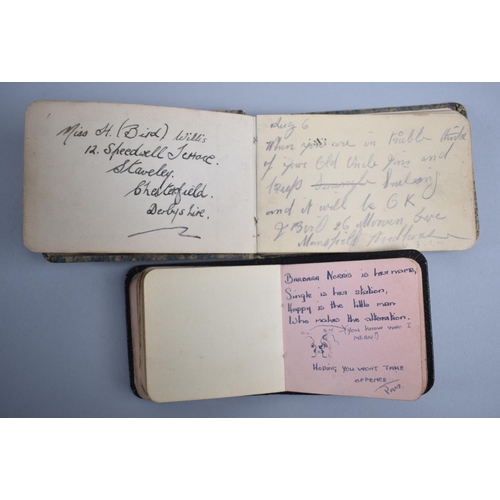 Miss H. (Bird) Willis
12. Speedwell Terrace.
Staveley.
Chesterfield.
Derbyshire.
Aug 6
When you are in Trouble think
of your Old Uncle and
keep
and it will be O K
J Bird 26
Mansfield Woodhouse
BARBARA NORRIS is her name,
Single is her station,
Happy is the little man
Who makes the alteration.
(YOU KNOW WHO I
MEAN!)
HOPING YOU WON'T TAKE
OFFENCE